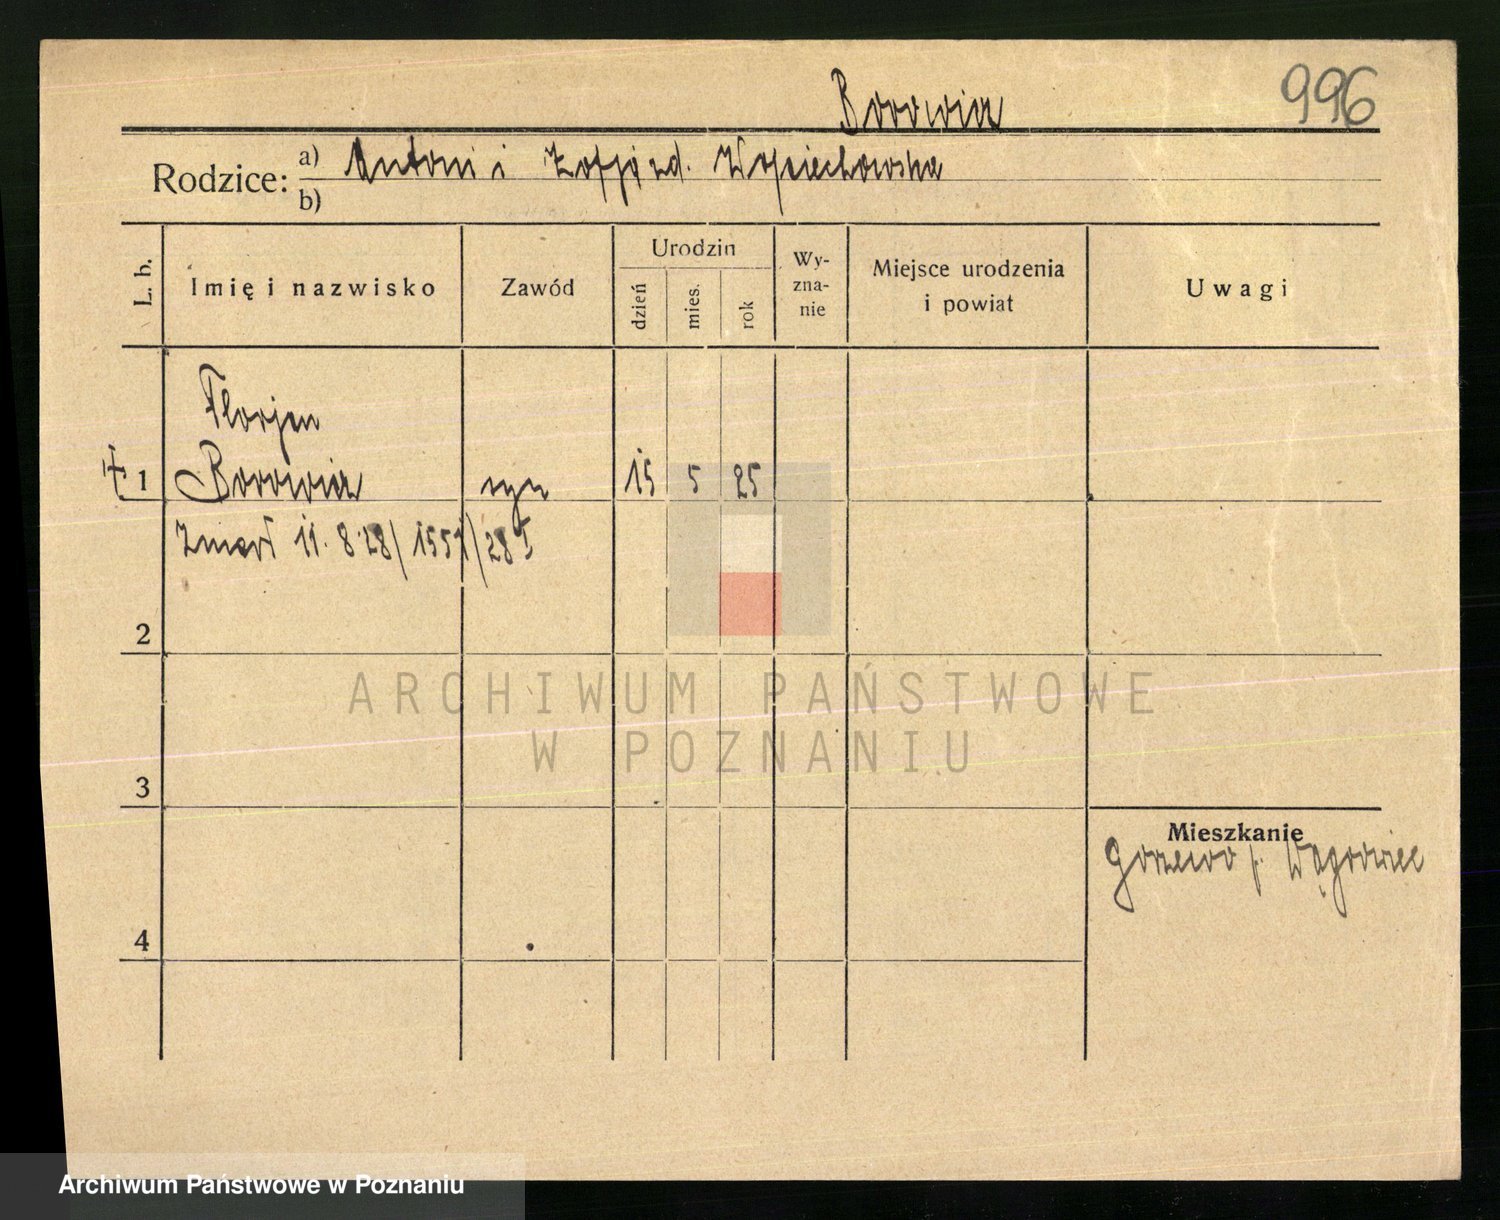 Borowiak
996
Rodzice: a) Antoni i Zofja zd. Wojciechowska
b)
L. b.
Imię i nazwisko
Zawód
Urodzin
dzień
mies.
rok
Wy-
zna-
nie
Miejsce urodzenia
i powiat
Uwagi
Florjan
1 Borowiak syn 15 5 25
Zmarł 11. 8. 28/
2
3
4
Mieszkanie
Gorzewo p. Wągrowiec
ARCHIWUM PAŃSTWOWE
W POZNANIU
Archiwum Państwowe w Poznaniu